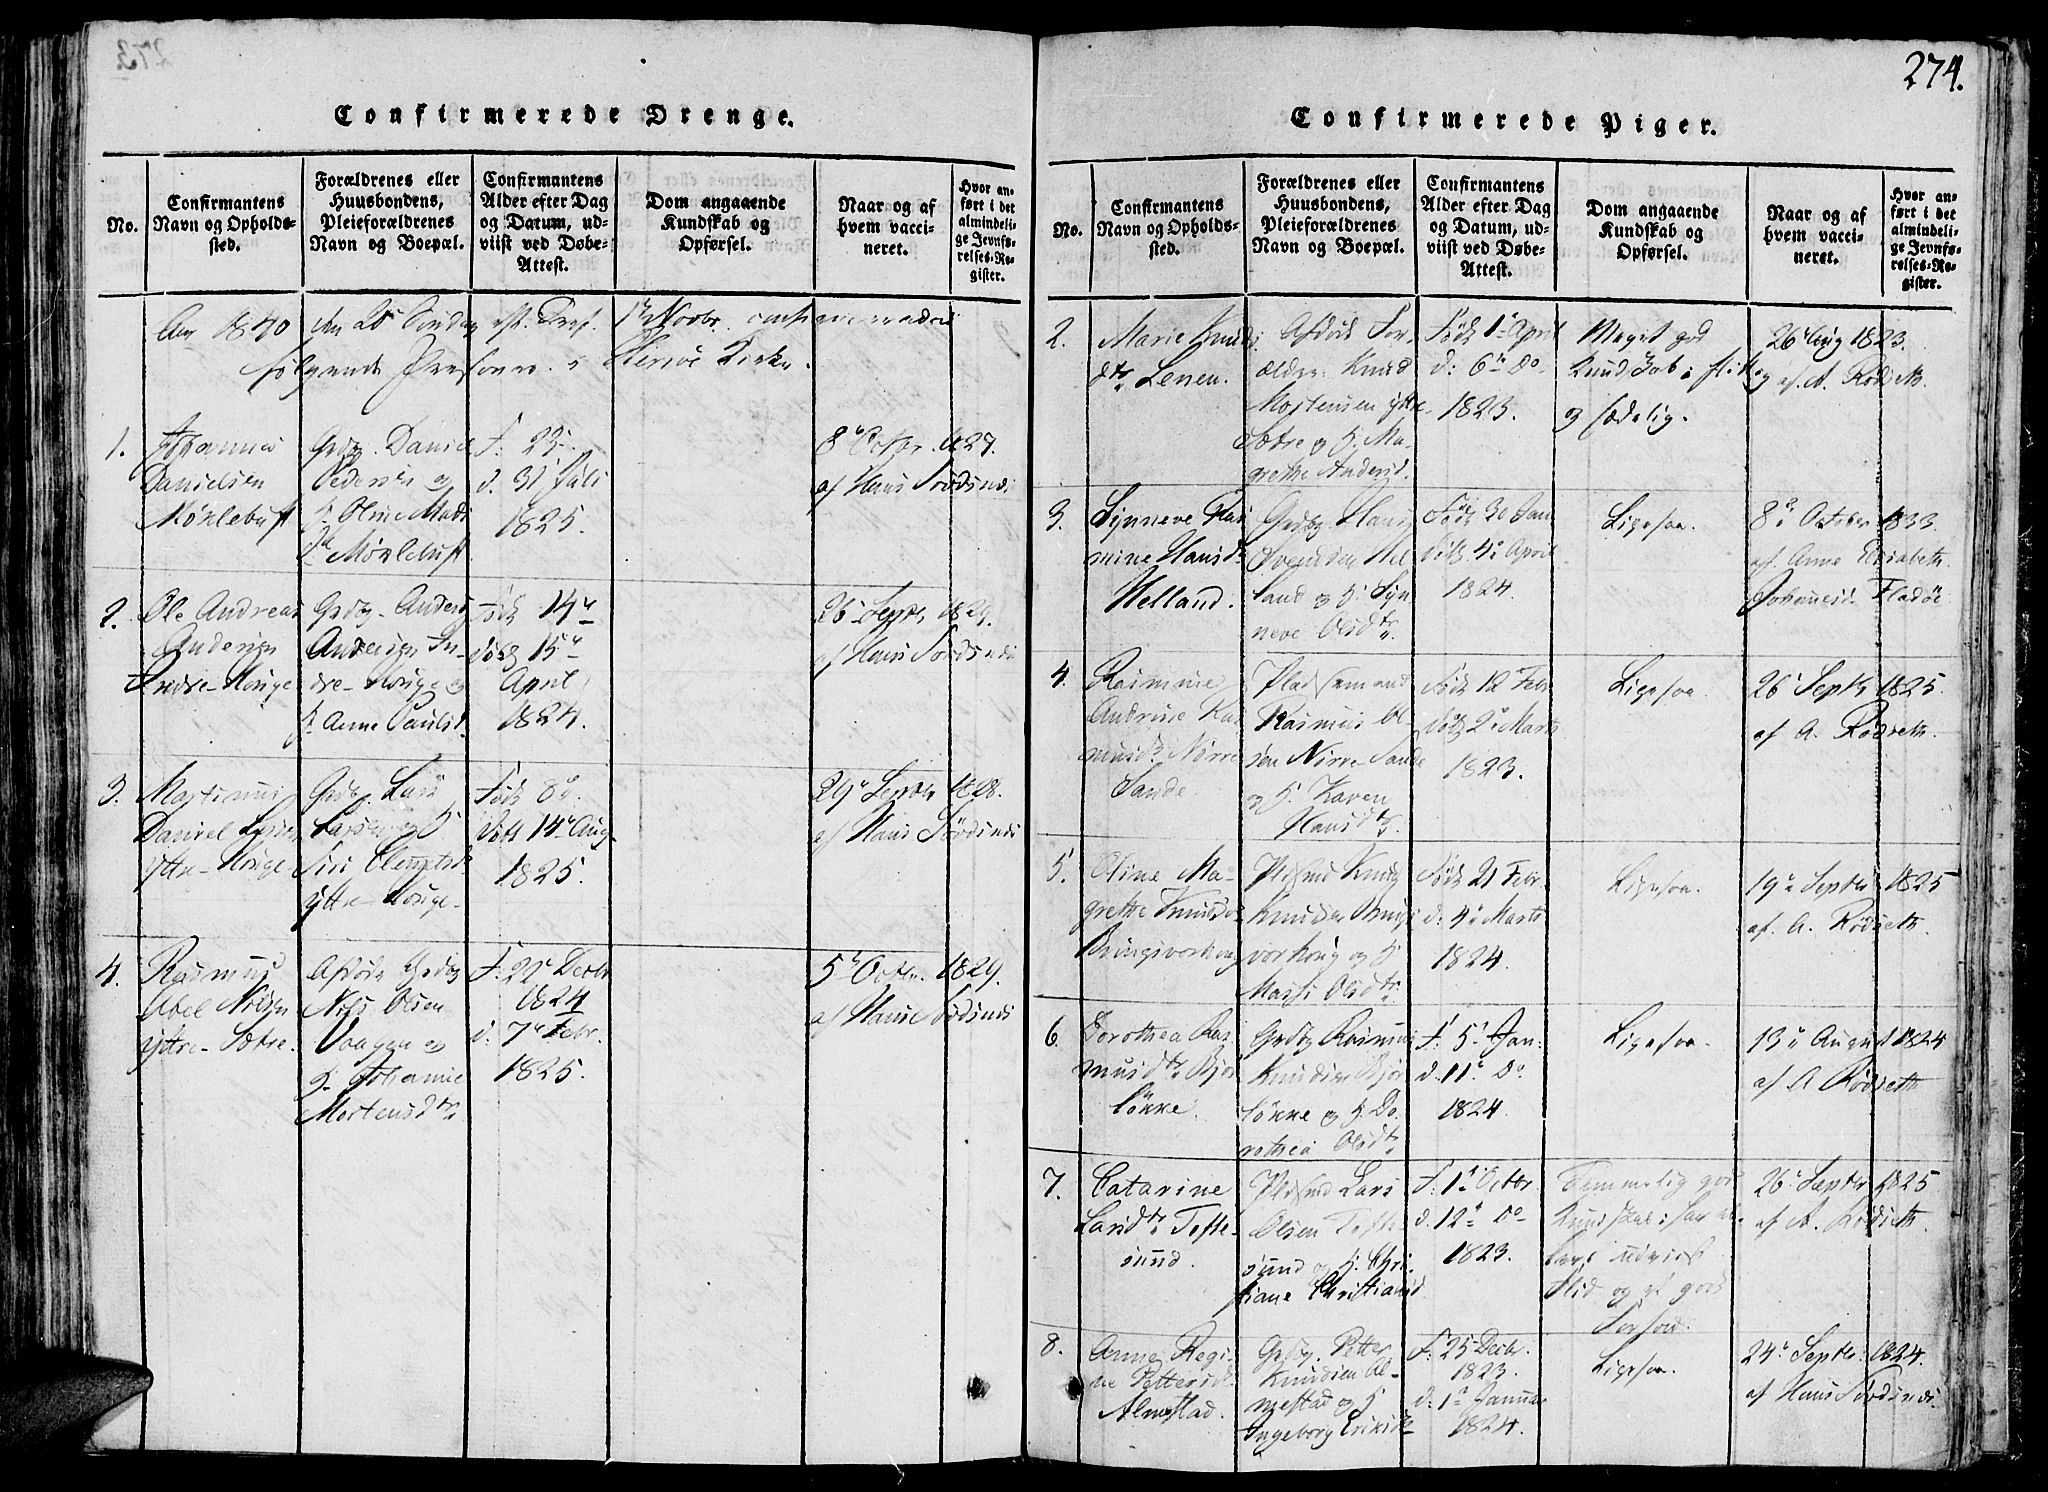 273.
Confirmerede Drenge.
No.
Confirmantens
Navn og Opholds-
sted.
Forældrenes eller
Huusbondens,
Pleieforældrenes
Navn og Boepæl.
Confirmantens
Alder efter Dag
og Datum, ud-
viist ved Døbe-
Attest.
Dom angaaende
Kundskab og
Opførsel.
Naar og af
hvem vacci-
neret.
Hvor an-
ført i det
almindeli-
ge Jevnfø-
relses-Re-
gister.
Aar 1840 den 20 Søndag eft. Tref. 1ste Novbr. confirmeredes
følgende Personer i Herøe Kirke.
1.
Johannes
Danielsen
Møklebust
Grdbg. Daniel
Pedersen og
H. Oline Mads
dr Møklebust
F. 25
d. 31 Juli
1825.
8de Octbr. 1827.
af Hans Sordsnæs
2.
Ole Andreas
Andersen
Indre-Houge
Grdbg. Anders
Andersen In-
dre-Houge og
H. Anne Paulsd.
Født 14de
døbt 15de
April
1824.
26 Septr 1829.
af Hans Sordsnæs
3.
Martinus
Daniel Larsen
Yttre-Houge
Grdbg. Lars
Larsen og H.
Siri Clemetsd.
Yttre-Houge
Født 8de
Døbt 14de Aug
1825.
29de Septbr 1828.
af Hans Sordsnæs
4.
Rasmus
Abel Nilsen
Yttre-Sætre.
Afdøde Grdbg
Nils Olsen
Vaagen og
H. Johanne
Mortensdtr.
F. 22de Decbr
1824
d. 7de Febr.
1825.
5te Octbr. 1829.
af Hans Sordsnæs
274.
Confirmerede Piger.
No.
Confirmantens
Navn og Opholds-
sted.
Forældrenes eller
Huusbondens,
Pleieforældrenes
Navn og Boepæl.
Confirmantens
Alder efter Dag
og Datum, ud-
viist ved Døbe-
Attest.
Dom angaaende
Kundskab og
Opførsel.
Naar og af
hvem vacci-
neret.
Hvor an-
ført i det
almindeli-
ge Jevnfø-
relses-Re-
gister.
2.
Marie Knuds
dtr. Lenen.
Afdøde For-
ældre: Knud
Mortensen yttre
Sætre og H. Ma-
grethe Andersd.
Født 1ste April
d. 6te Do
1823.
Meget god
Kundskab; flittig
og sædelig.
26 Aug 1823.
af A. Rødseth.
3.
Synneve Ras
mine Hansdr
Helland.
Grdbg Hans
Ovendsen Hel
land og H. Syn
neve Olsdtr.
Født 30 Jan
døbt 4de April
1824.
Ligesaa.
8de October 1833.
af Anne Elisabeth
Johannesd. Fladøe
4.
Rasmine
Andrine Ras
musdr. Nørre
Sande
Pladsemand
Rasmus Ol
sen Nørre-Sande
og H. Karen
Hansdtr.
Født 12 Febr
døbt 2de Marts
1823.
Ligesaa.
26 Septbr 1825.
af A. Rødseth.
5.
Oline Ma-
grethe Knudsdr
Pladsmd Knud
Knudsen
og H.
Marthe Olsdtr.
Født 21 Febr.
d. 4de Marts
1824.
Ligesaa.
19de Septbr 1825
af. A. Rødseth.
6.
Dorothea Ras
musdtr. Bjør
løkke.
Grdbg Rasmus
Knudsen Bjør
løkke og H. Do
rothea Olsdtr.
F. 5te Jan.
d. 11te Do
1824.
Ligesaa.
13de August 1824
af A Rødseth
7.
Catarine
Larsdtr. Tofte-
sund.
Pladsmd Lars
Olsen Tofte
sund og H. Chri
stiane Christiansd
F. 1ste Octbr.
d. 12te Do
1823.
Temmelig god
Kundskab;
udviist
Flid og et godt
Forhold.
26 Septbr 1825
af A. Rødseth.
8.
Anne Regi-
ne Pettersd.
Almestad.
Grdbg. Petter
Knudsen Al-
mestad og H
Ingeborg Eriksdr
F. 25 Decbr.
1823.
d. 1ste Januar
1824.
Ligesaa.
24de Septbr. 1824.
af Hans Sordsnæs.